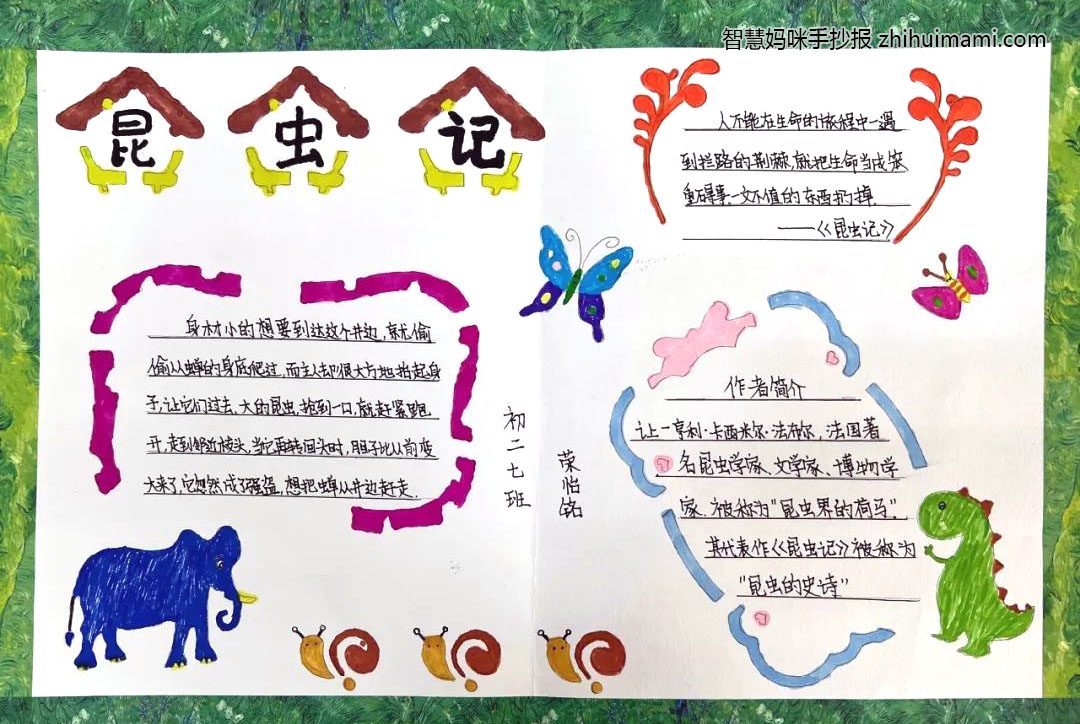 智慧妈咪手抄报 zhihuimami.com
昆虫记
人不能在生命的旅程中一遇
到拦路的荆棘,就把生命当成笨
重碍事、一文不值的东西扔掉.
——《昆虫记》
身材小的想要到达这个井边,就偷
偷从蝉的身底爬过,而主人却很大方地抬起身
子,让它们过去.大的昆虫,抢到一口,就赶紧跑
开,走到邻近枝头,当它再转回头时,胆子比从前变
大来了,它忽然成了强盗,想把蝉从井边赶走.
初二七班
荣怡铭
作者简介
让—亨利·卡西米尔·法布尔,法国著
名昆虫学家、文学家、博物学
家.被称为"昆虫界的荷马".
其代表作《昆虫记》被称为
"昆虫的史诗"